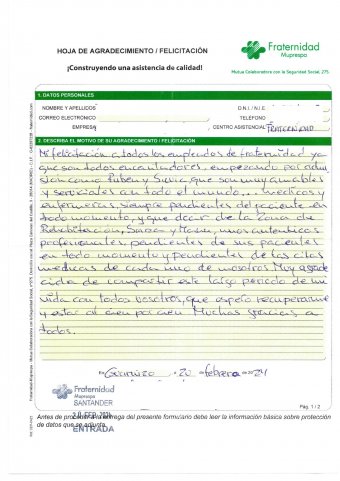 HOJA DE AGRADECIMIENTO / FELICITACIÓN
¡Construyendo una asistencia de calidad!
Fraternidad
Muprespa
Mutua Colaboradora con la Seguridad Social, 275
1. DATOS PERSONALES
NOMBRE Y APELLIDOS
D.N.I./N.I.E
CORREO ELECTRÓNICO
TELÉFONO
EMPRESA
CENTRO ASISTENCIAL FRATERNIDAD
2. DESCRIBA EL MOTIVO DE SU AGRADECIMIENTO / FELICITACIÓN
Mi felicitación a todos los empleados de Fraternidad ya
que son todos encantadores, empezando por admi
sion como Ruben y Silvia que son muy amables
y serviciales an todo el mundo... medicos y
enfermeras, siempre pendientes del paciente en
todo momento, y que decir de la zona de
Rehabilitación, Sara y Manu, unos autenticos
profesionales, pendientes de sus pacientes
en todo momento y pendientes de las citas
medicas de cada uno de nosotros Muy agrade
cida de compartir este largo periodo de mi
vida con todos vosotros, que espero recuperarme
y estar al cien por cien Muchas gracias a
todos.
En Guarnizo 20 febrero de 2024
Fraternidad
Muprespa
SANTANDER
20 FEB. 2024
ENTRADA
Pág. 1 / 2
Antes de proceder a la entrega del presente formulario debe leer la información básica sobre protección
de datos que se adjunta.